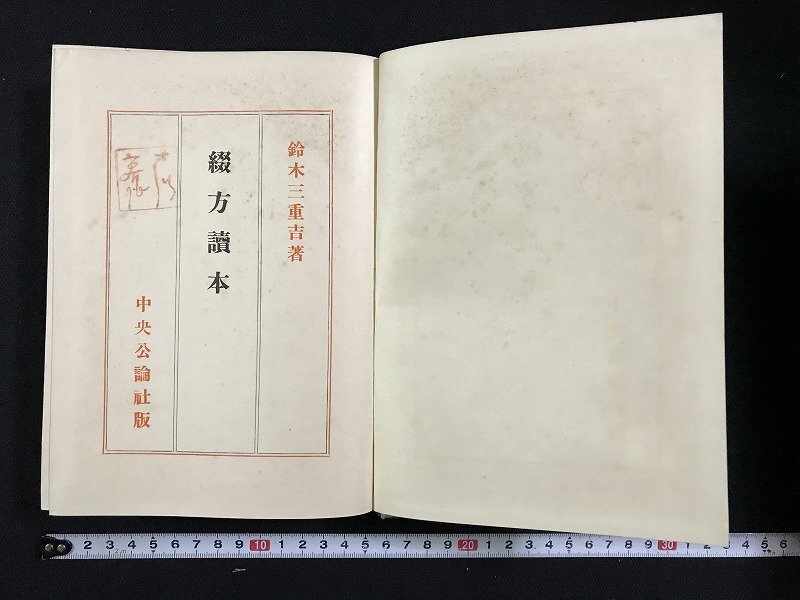 鈴木三重吉著
綴方讀本
中央公論社版
2 3 4 5 6 7 8 9 10 1 2 3 4 5 6 7 8 9 20 1 2 3 4 5 6 7 8 9 30 1 2 3 4 5 6